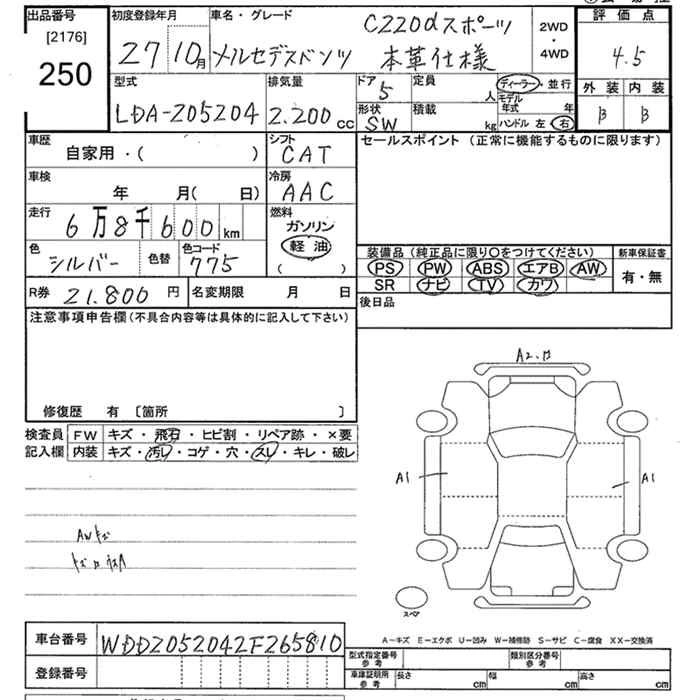 出品番号 初度登録年月 車名・グレード C220dスポーツ 2WD 評価点
[2176] 27 10月 メルセデスベンツ 本革仕様 ・ 4.5
250 4WD
型式 排気量 ドア 定員 ディーラー・並行 外装 内装
LDA-205204 2.200cc 5 人 モデル年式 年 B B
形状 積載
SW kg ハンドル 左 右
車歴 シフト セールスポイント (正常に機能するものに限ります)
自家用・( ) CAT
車検 冷房
年 月( 日) AAC
走行 燃料
6万8千600km ガソリン
軽油
色 色替 色コード ( )
シルバー 775
装備品(純正品に限り○をつけてください) 新車保証書
PS PW ABS エアB AW 有・無
SR ナビ TV カワ
R券 21.800円 名変期限 月 日 後日品
注意事項申告欄(不具合内容等は具体的に記入して下さい)
修復歴 有 〔箇所 〕
検査員 FW キズ・飛石・ヒビ割・リペア跡・×要
記入欄 内装 キズ・汚レ・コゲ・穴・スレ・キレ・破レ
A2.
A1 A1
AWキズ
スペア
A-キズ E-エクボ U-凹み W-補修跡 S-サビ C-腐食 XX-交換済
車台番号 WDD2052042F265810
登録番号
型式指定番号 参考 類別区分番号 参考
車庫証明所 参考 長さ cm 幅 cm 高さ cm